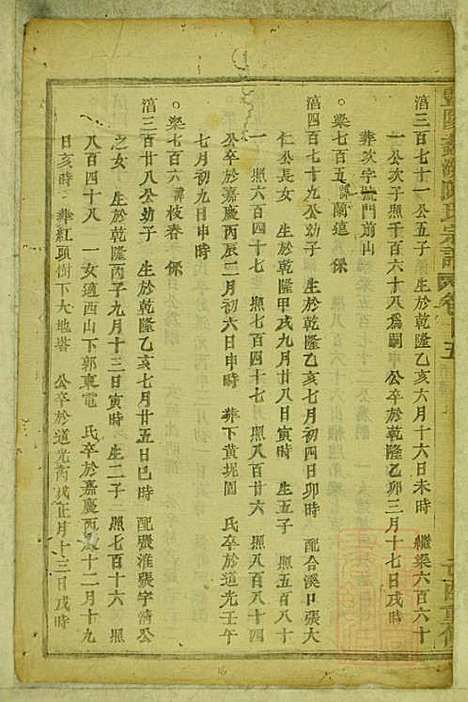 涫三百七十一公五子　生於乾隆乙亥六月十六日未時　繼梁六百六十
一公次子照千百六十八爲嗣　公卒於乾隆乙卯三月十七日戌時
葬次字　門前山
○梁七百五　諱蘭適　保
涫四百七十九公幼子　生於乾隆乙亥七月初四日卯時　配合溪口張大
仁公長女　生於乾隆甲戌九月廿八日寅時　生五子　照五百八十
一　照六百四十七　照七百四十七　照八百廿六　照八百八十四
公卒於嘉慶丙辰二月初六日申時　葬下黃坭園　氏卒於道光壬午
七月初九日申時
○梁七百六　諱枝春　保
涫三百廿八公幼子　生於乾隆乙亥七月廿五日巳時　配張淮張字濟公
之女　生於乾隆丙子九月十三日寅時　生二子　照七百十六　照
八百四十八　一女適西山下郭東電　氏卒於嘉慶丙　十二月十九
日亥時　葬紅頭樹下大地塔　公卒於道光丙戌正月十三日戌時
氏宗譜　卷十五